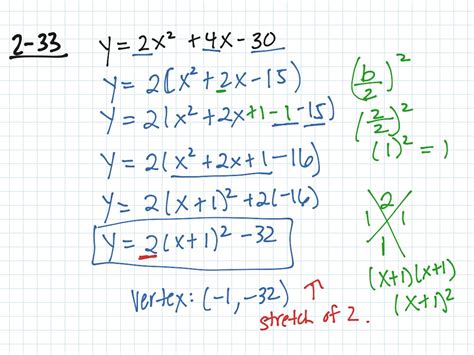 2-33 y = 2x² + 4x - 30
y = 2(x² + 2x - 15)
y = 2(x² + 2x + 1 - 1 - 15)
y = 2(x² + 2x + 1 - 16)
y = 2(x + 1)² + 2(-16)
y = 2(x + 1)² - 32
vertex: (-1, -32) ↑
stretch of 2.
(b/2)²
(2/2)²
(1)² = 1
2
1 1
1
(x+1)(x+1)
(x+1)²